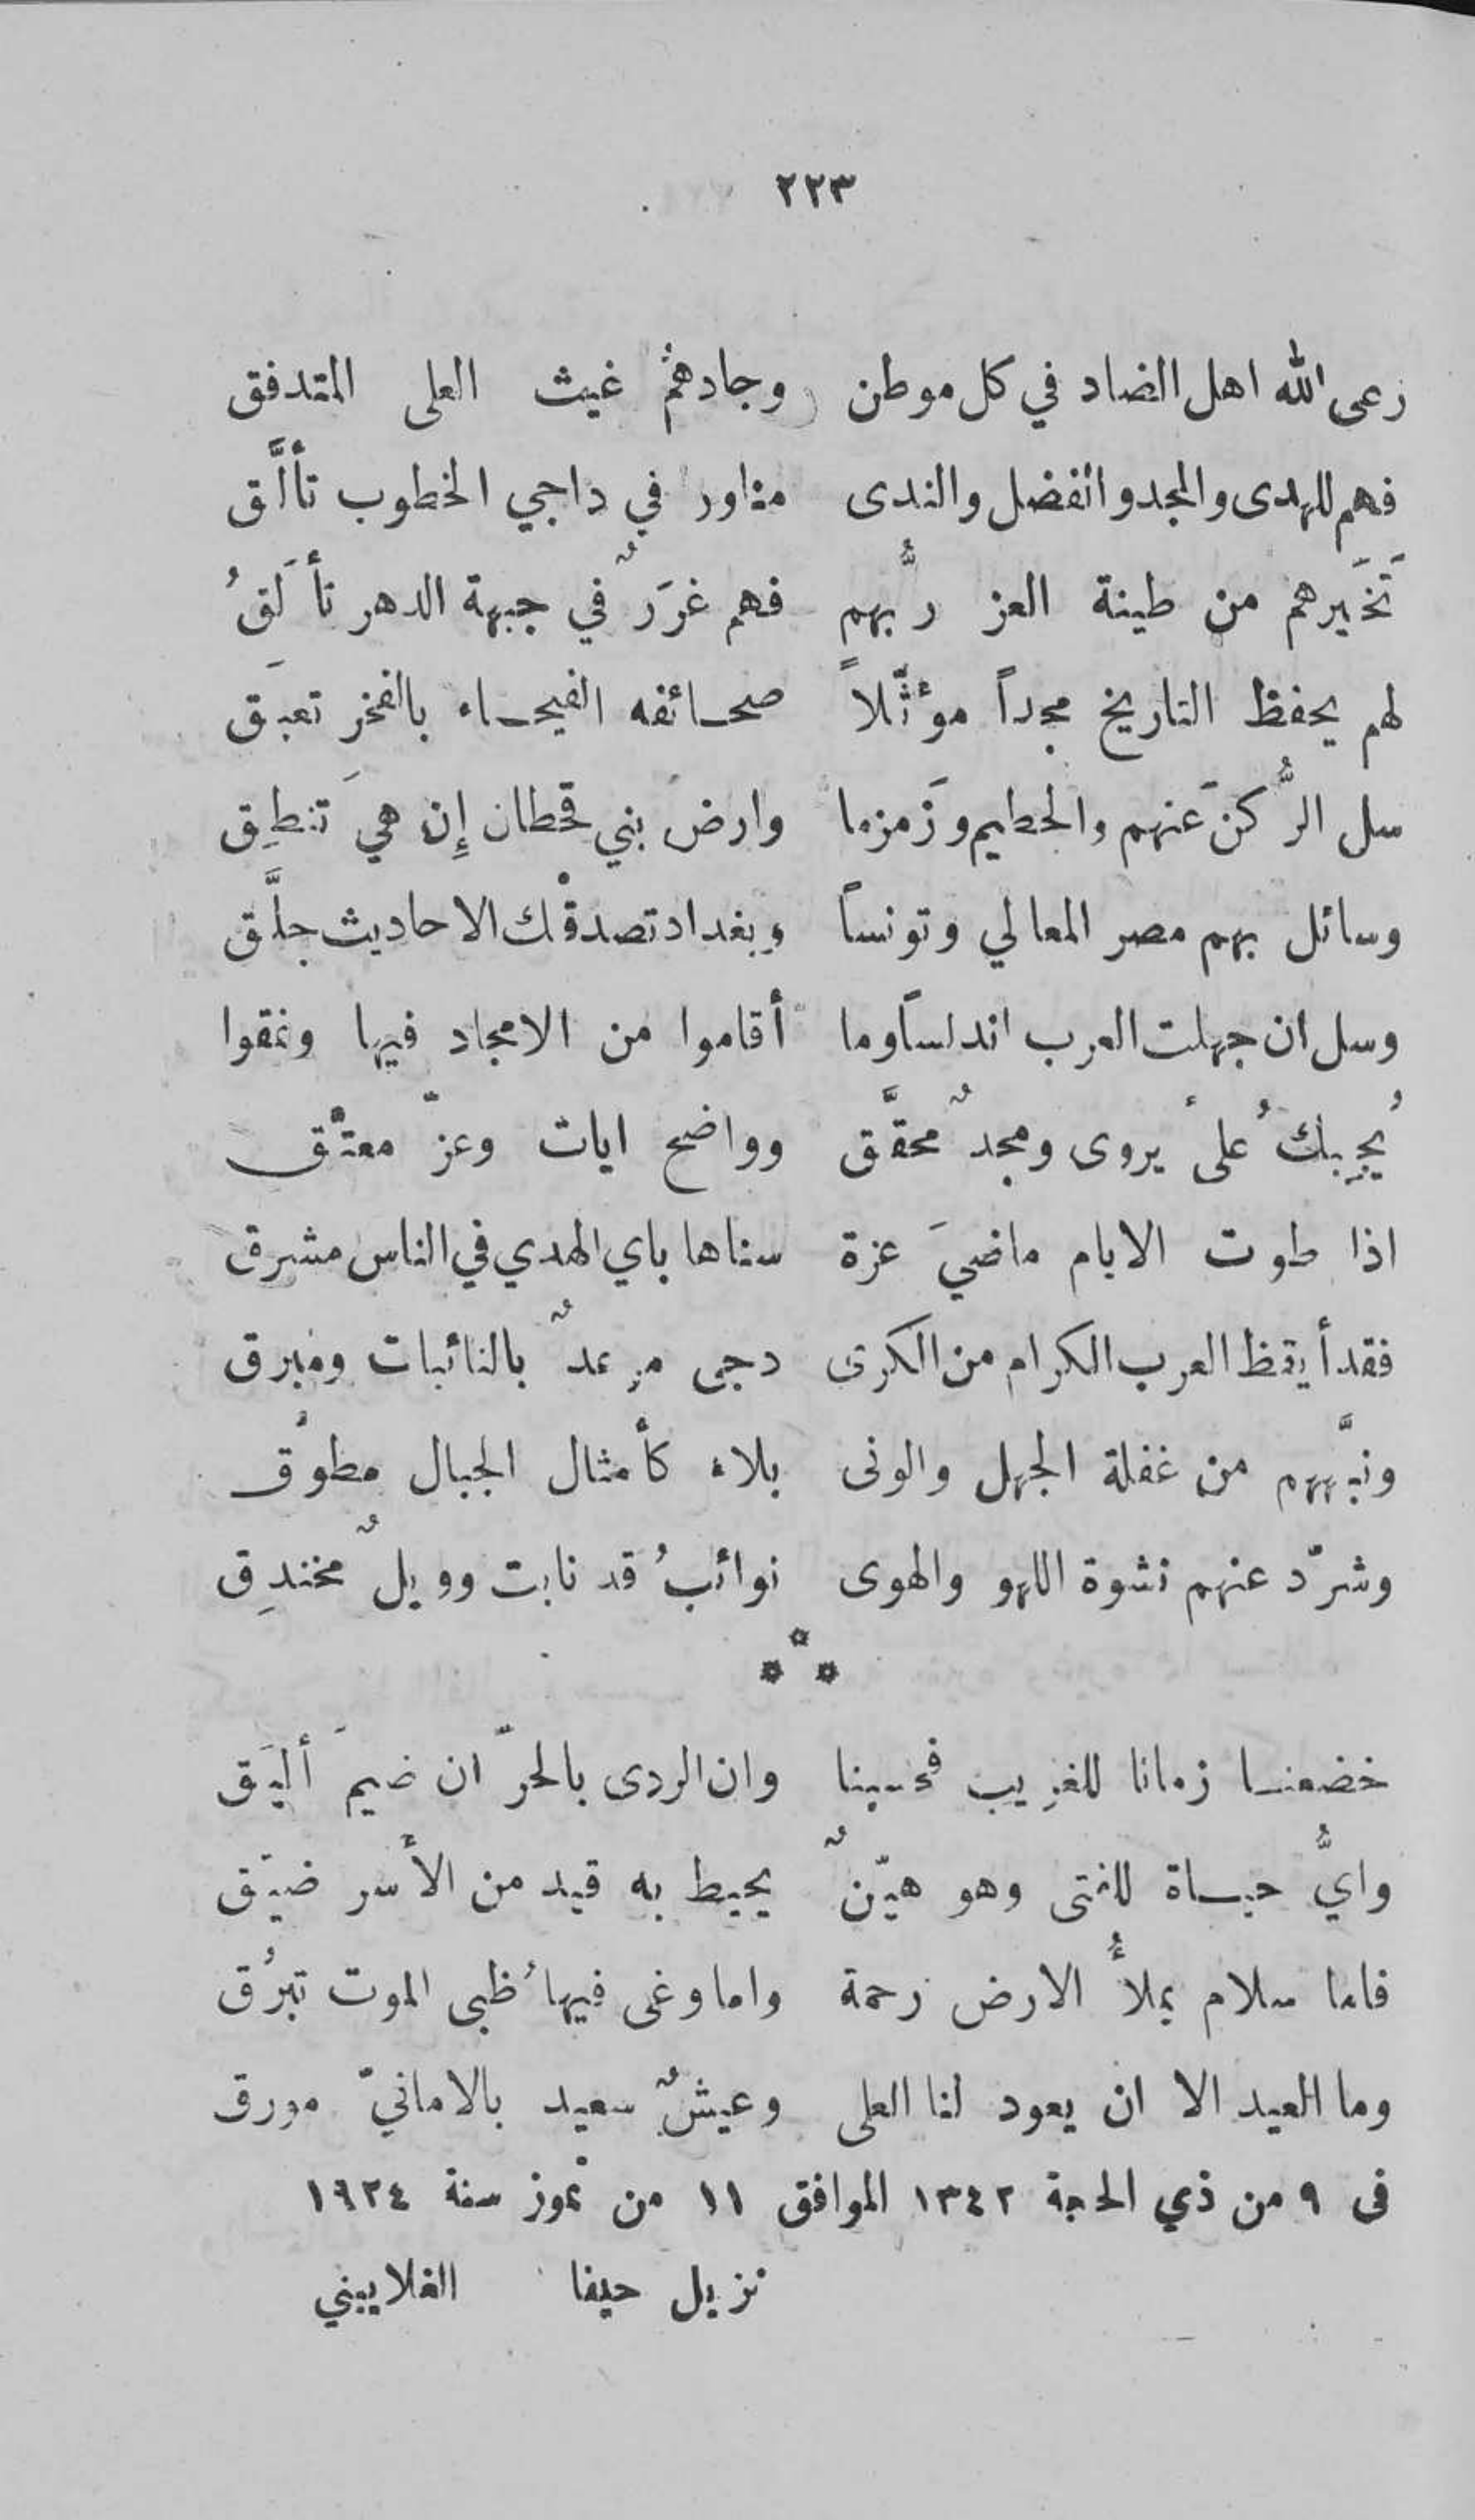 ٢٢٣
رعى الله اهل الضاد في كل موطن وجادهمُ غيث العلى المتدفق
فهم للهدى والمجد والفضل والندى مناور في داجي الخطوب تألَّق
تَخَيرهم من طينة العز ربُّهم فهم غرَرٌ في جبهة الدهر تأَلَقُ
لهم يحفظ التاريخ مجداً مؤثَّلاً صحائفه الفيحاء بالفخر تعبَق
سل الرُّكنَ عنهم والحطيم وَزمزما وارضَ بني قحطان إِن هيَ تنطِق
وسائل بهم مصر المعالي وتونساً وبغداد تصدقْك الاحاديث جلَّق
وسل ان جهلت العرب اندلساً وما أقاموا من الامجاد فيها ونمقوا
يُجِبك عُلىً يروى ومجدٌ محقَّق وواضح ايات وعزّ معتَّق
اذا طوت الايام ماضيَ عزة سناها باي الهدي في الناس مشرق
فقد أيقظ العرب الكرام من الكرى دجى مرعدٌ بالنائبات ومبرق
ونبَّههم من غفلة الجهل والونى بلاء كأمثال الجبال مطوِّق
وشرّد عنهم نشوة اللهو والهوى نوائبُ قد نابت وويلٌ مخندِق
خضعنا زمانا للغريب فحسبنا وان الردى بالحرّ ان ضيمَ أليَق
وايُّ حياة للفتى وهو هيّنٌ يحيط به قيد من الأسر ضيّق
فاما سلام يملأُ الارض رحمة واما وغى فيها ظُبى الموت تبرُق
وما العيد الا ان يعود لنا العلى وعيشٌ سعيد بالامانيّ مورق
فى ٩ من ذي الحجة ١٣٤٢ الموافق ١١ من تموز سنة ١٩٢٤
نزيل حيفا الغلاييني